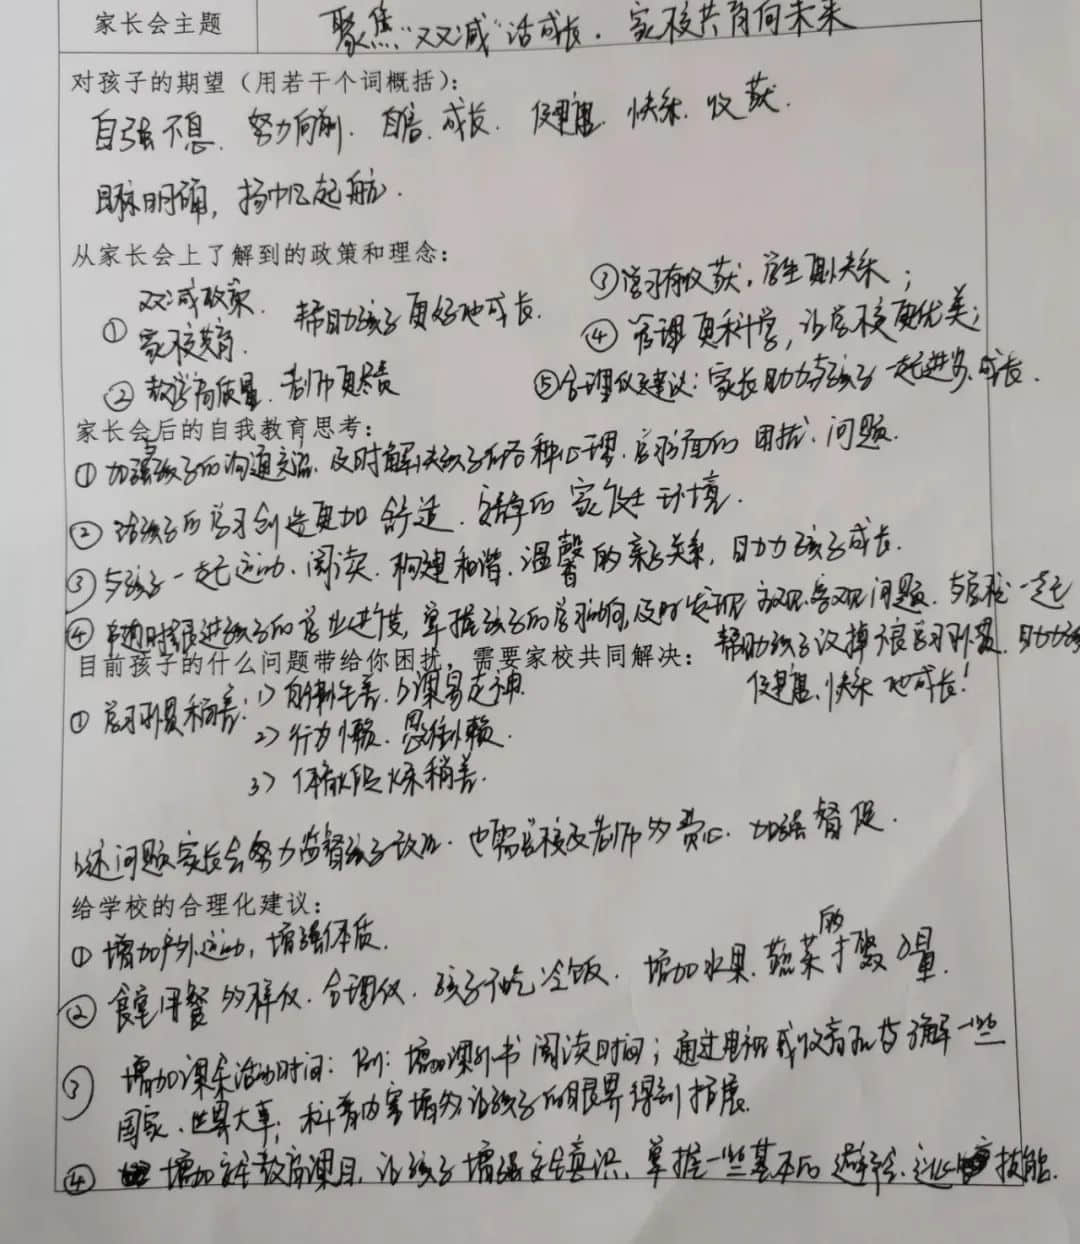 家长会主题
聚焦“双减”话成长. 家校共育向未来
对孩子的期望（用若干个词概括）:
自强不息. 努力向前. 自信. 成长. 健康. 快乐. 收获.
目标明确, 扬帆起航.
从家长会上了解到的政策和理念:
① 双减政策. 家校共育. 帮助孩子更好地成长.
② 教学高质量. 老师更尽责
③ 学习有收获, 学生更快乐;
④ 管理更科学, 让学校更优美;
⑤合理化建议: 家长助力与孩子一起进步. 成长.
家长会后的自我教育思考:
① 加强与孩子的沟通交流. 及时解决孩子在各种心理. 学习方面的困扰. 问题.
② 给孩子的学习创造更加舒适. 安静的家庭环境.
③ 与孩子一起运动. 阅读. 构建和谐. 温馨的亲子关系, 助力孩子成长.
④ 随时跟进孩子的学业进度, 掌握孩子的学习动向, 及时发现 客观问题. 与学校一起
帮助孩子改掉不良学习习惯. 助力孩子
健康. 快乐地成长!
目前孩子的什么问题带给你困扰，需要家校共同解决:
① 学习习惯稍差: 1) 自律性差. 上课易走神.
2) 行为懒. 思维懒.
3) 体育锻炼稍差.
上述问题家长会努力监督孩子改正. 也需学校及老师的费心. 加强督促.
给学校的合理化建议:
① 增加户外运动, 增强体质.
② 食堂用餐的样化. 合理化. 孩子不吃冷饭. 增加水果. 蔬菜的数量.
③ 增加课余活动时间: 例: 增加课外书阅读时间; 通过电视或收音机等了解一些
国家. 世界大事; 科普内容增多, 让孩子的眼界得到拓展.
④ 增加安全教育课目, 让孩子增强安全意识. 掌握一些基本的 技能.